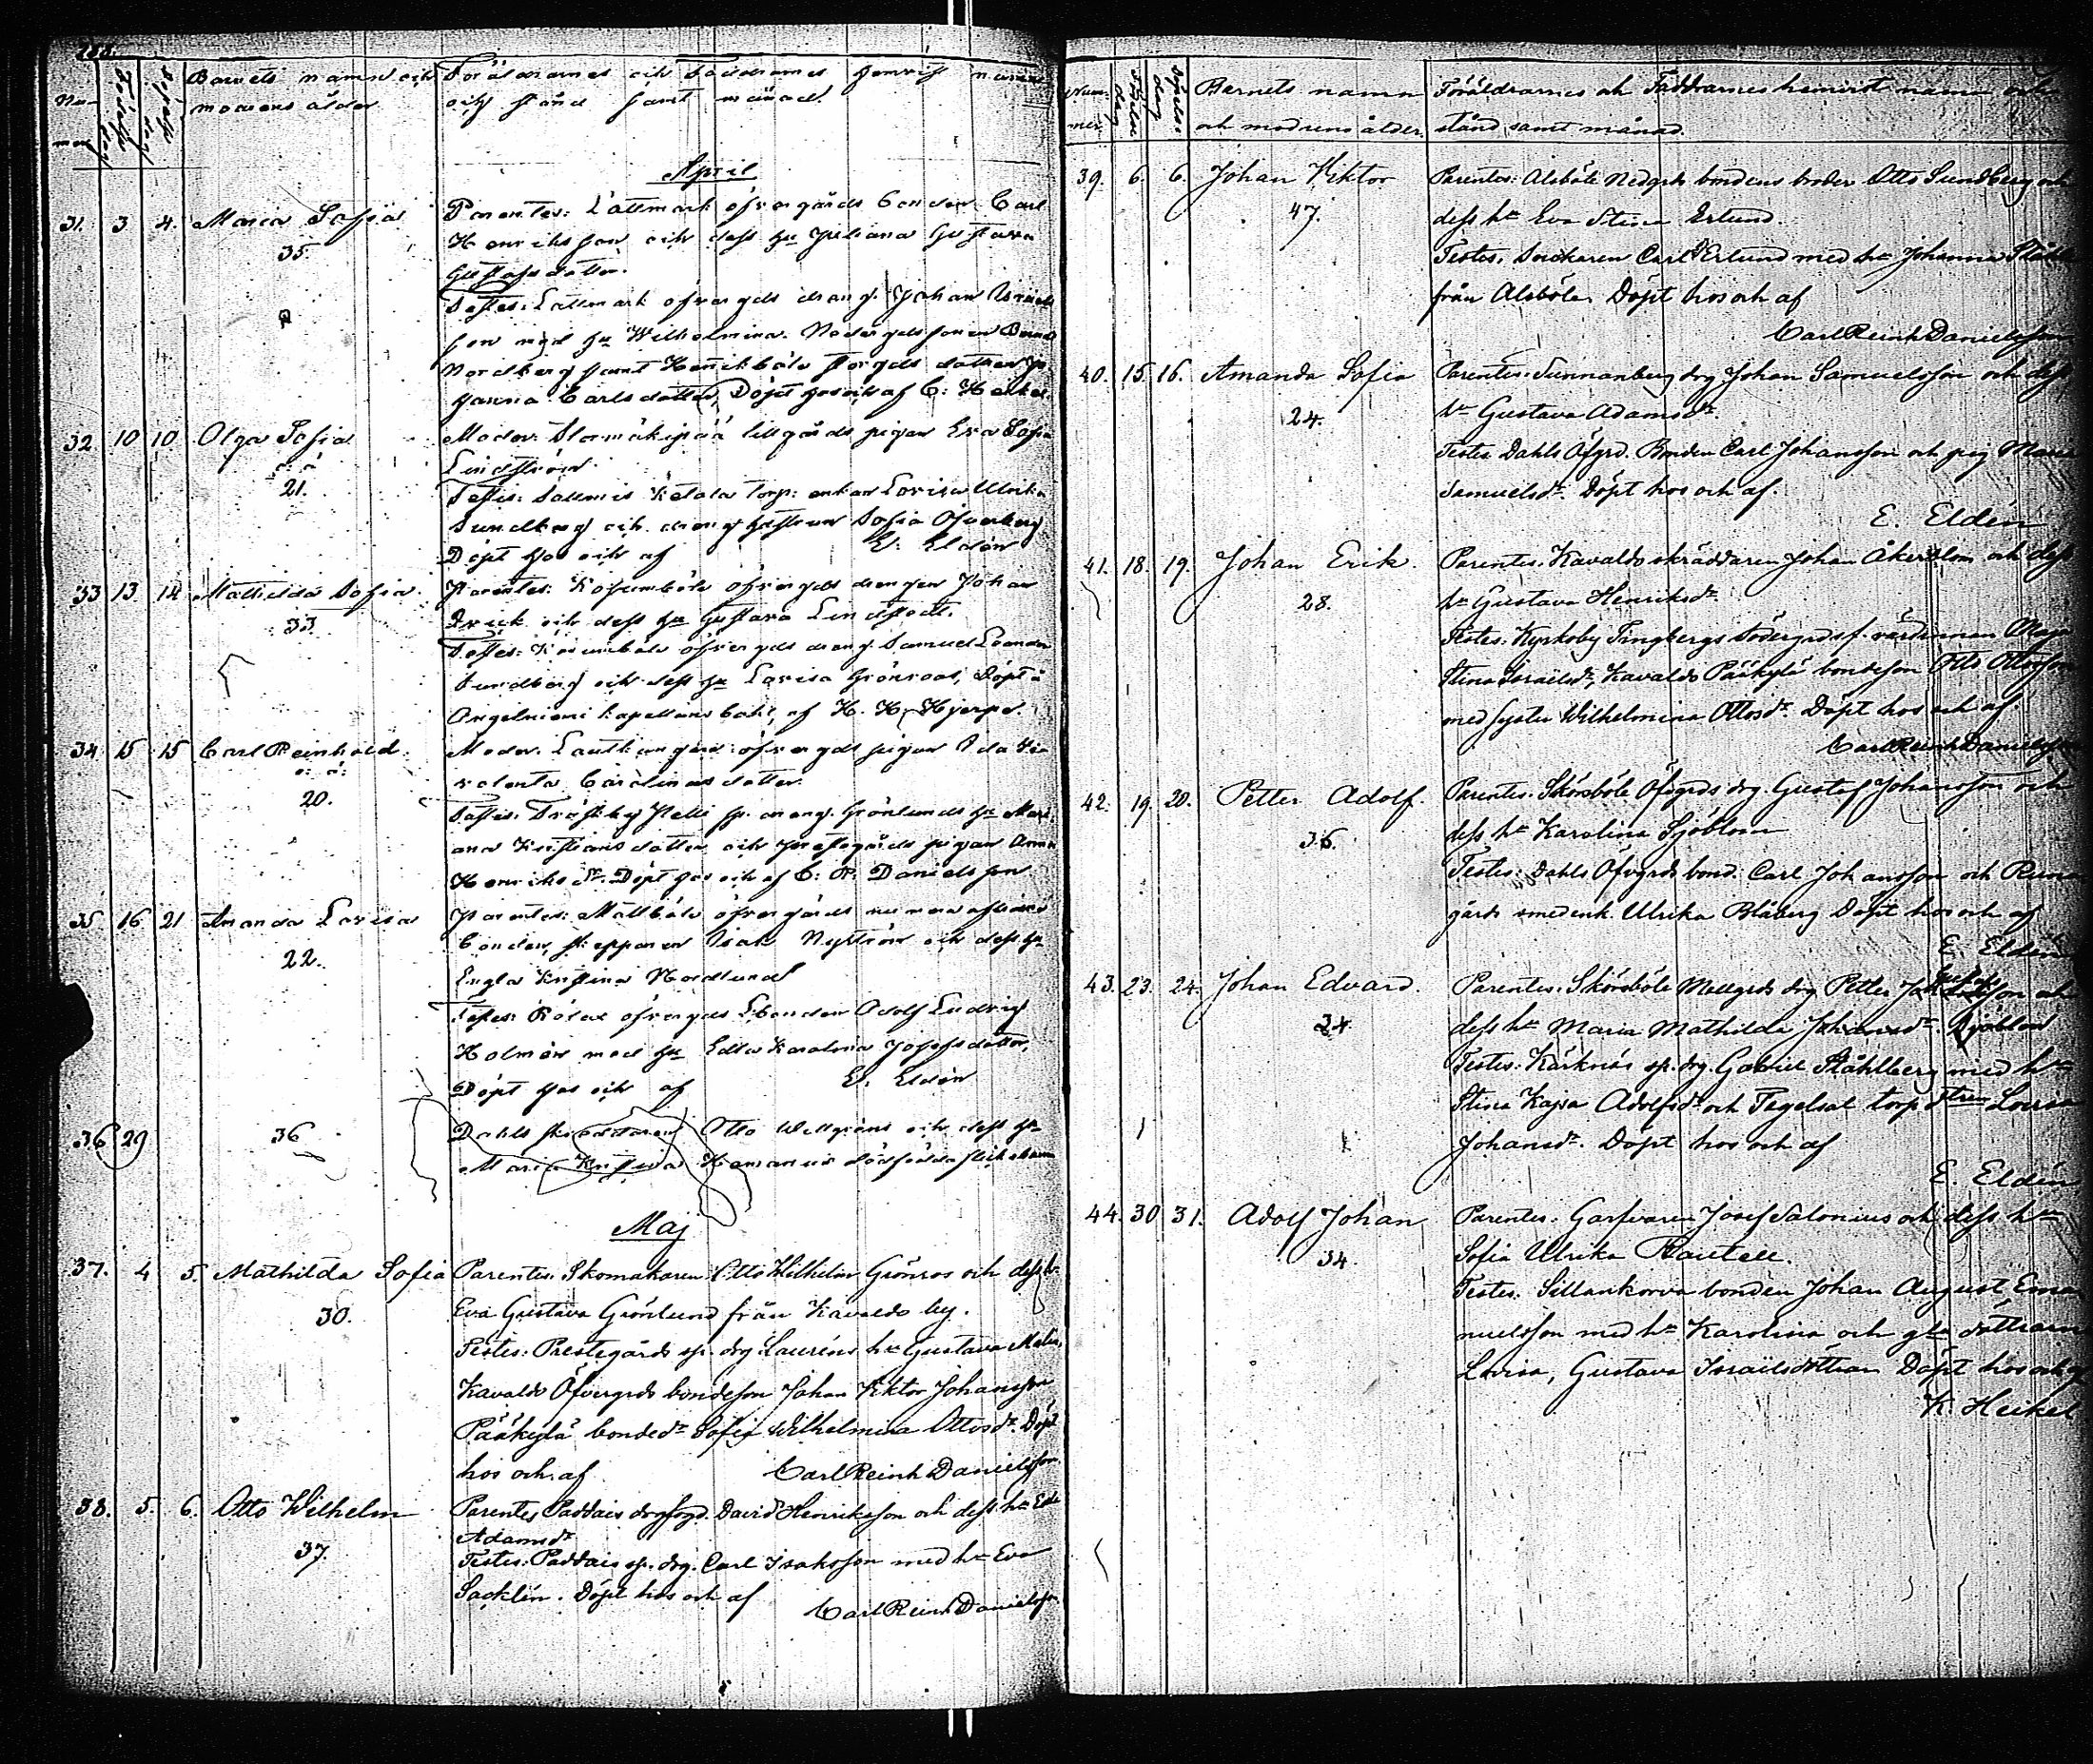 Num-
mer
Födelse
dag
Döpelse
dag
Barnets namn och
modrens ålder
Föräldrarnes och Faddrarnes hemvist namn
och stånd samt månad.
April
31. 3 4. Maria Sofia
35.
Parentes: Lättmark öfvergårds bonden Carl
Henriksson och dess hu Juliana Gustava
Gustafsdotter.
Testes: Lättmark öfvergds dräng. Johan Israels
son med hu Wilhelmina. Nedergds sonen
Nordberg samt Henriksböle storgds dottren Jo
hanna Carlsdotter, Döpt hos och af C: Heikel.
32 10 10 Olga Sofia
o: ä:
21.
Moder: lillgårds pigan Eva Sofia
Lindström
Testes: Sallmis Ketala torp: enkan Lovisa Ulrika
Sundberg och dräng hustrun Sofia Öfverberg
Döpt hos och af E: Eldén
33 13 14 Mathilda Sofia.
33.
Parentes: öfvergds drengen Johan
och dess hu Gustava Lindstedt.
Testes: öfvergds dräng. Samuel Leander
Sundberg och dess hu Lovisa Grönroos, Döpt i
Angelniemi kapellans bohl, af K. H. Hjerpe.
34 15 15 Carl Reinhold.
o: ä:
20.
Moder. öfvergds pigan Ida
Carolina dotter.
Testes: Träskby sp. dräng. Grönlunds hu Mari
ana Kristians dotter och prestgårds pigan Anna
Henriks dr. Döpt hos och af C: R: Danielsson
35 16 21 Amanda Lovisa
22.
Parentes: Mattböle öfvergårds
bonden, skepparen Isak Nyström och dess hu
Engla Kristina Nordlund
Testes: Rölax öfvergds bonden Adolf Ludvig
Holmén med hu Edla Karolina Josefsdotter,
Döpt hos och af E. Eldén
36 29
36
Dahls skräddaren Otto Wellgrens och dess hu
Maria Kristina dödfödda flickebarn
Maj
37. 4 5. Mathilda Sofia
30.
Parentes: Skomakaren Otto Wilhelm Grönros och dess hu
Eva Gustava Grönlund från Kavaldo by.
Testes: Prestegårds sp. drg Lauréns hu Gustava
Kavaldo Öfvergrds bondeson Johan Viktor Johansson
Pääkylä bondedr Sofia Wilhelmina Ottosdr. Döpt
hos och af Carl Reinh Danielsson
38. 5. 6. Otto Wilhelm
37.
Parentes Paddais drgfogd. David Henriksson och dess hu
Adamsdr
Testes: Paddais sp. drg. Carl Isaksson med hu Eva
Sacklén. Döpt hos och af Carl Reinh Danielsson
Num-
mer
Födelse
dag
Döpelse
dag
Barnets namn
och modrens ålder.
Föräldrarnes och Faddrarnes hemvist namn och
stånd samt månad.
39. 6. 6. Johan Viktor
47.
Parentes: Alsböle Nedgrds bondens broder Otto Sundberg och
dess hu Eva Stina Erlund.
Testes: Snickaren Carl Erlund med hu Johanna
från Alsböle. Döpt hos och af
Carl Reinh Danielsson
40. 15 16. Amanda Sofia
24.
Parentes: Sunnanberg drg Johan Samuelsson och dess
hu Gustava Adamsdr.
Testes Dahls Öfgrd. Bonden Carl Johansson och pig Maria
Samuelsdr. Döpt hos och af.
E. Eldén
41. 18. 19. Johan Erik.
28.
Parentes: Kavaldo skräddaren Johan Åkerblom och dess
hu Gustava Henriksdr.
Testes: Kyrkoby Tingbergs Södergrds f. värdinnan Maja
Stina Israelsdr, Kavaldo Pääkylä bondeson Otto Ottosson
med syster Wilhelmina Ottosdr. Döpt hos och af.
Carl Reinh Danielsson
42. 19. 20. Petter Adolf.
36.
Parentes: Skörsböle Öfvgrds drg. Gustaf Johansson och
dess hu Karolina Sjöblom
Testes: Dahls Öfvgrds bond. Carl Johansson och
gårds smedenk. Ulrika Blåberg Döpt hos och af
E. Eldén
43. 23. 24. Johan Edvard.
24
Parentes: Skörsböle Mellgrds drg Petter och
dess hu Maria Mathilda Sjöblom
Testes: Kärknäs sp. drg. Gabriel Ståhlberg med hu
Stina Kajsa Adolfsdr och Tegelsal torp dtren Lovisa
Johansdr. Döpt hos och af
E. Eldén
44. 30 31. Adolf Johan
34.
Parentes: Garfvaren Josef Salonius och dess hu
Sofia Ulrika Rautell.
Testes: Sillankorva bonden Johan August Ema
nuelsson med hu Karolina och gla döttrarna
Lovisa, Gustava Israelsdöttrar Döpt hos och af
K. Heikel